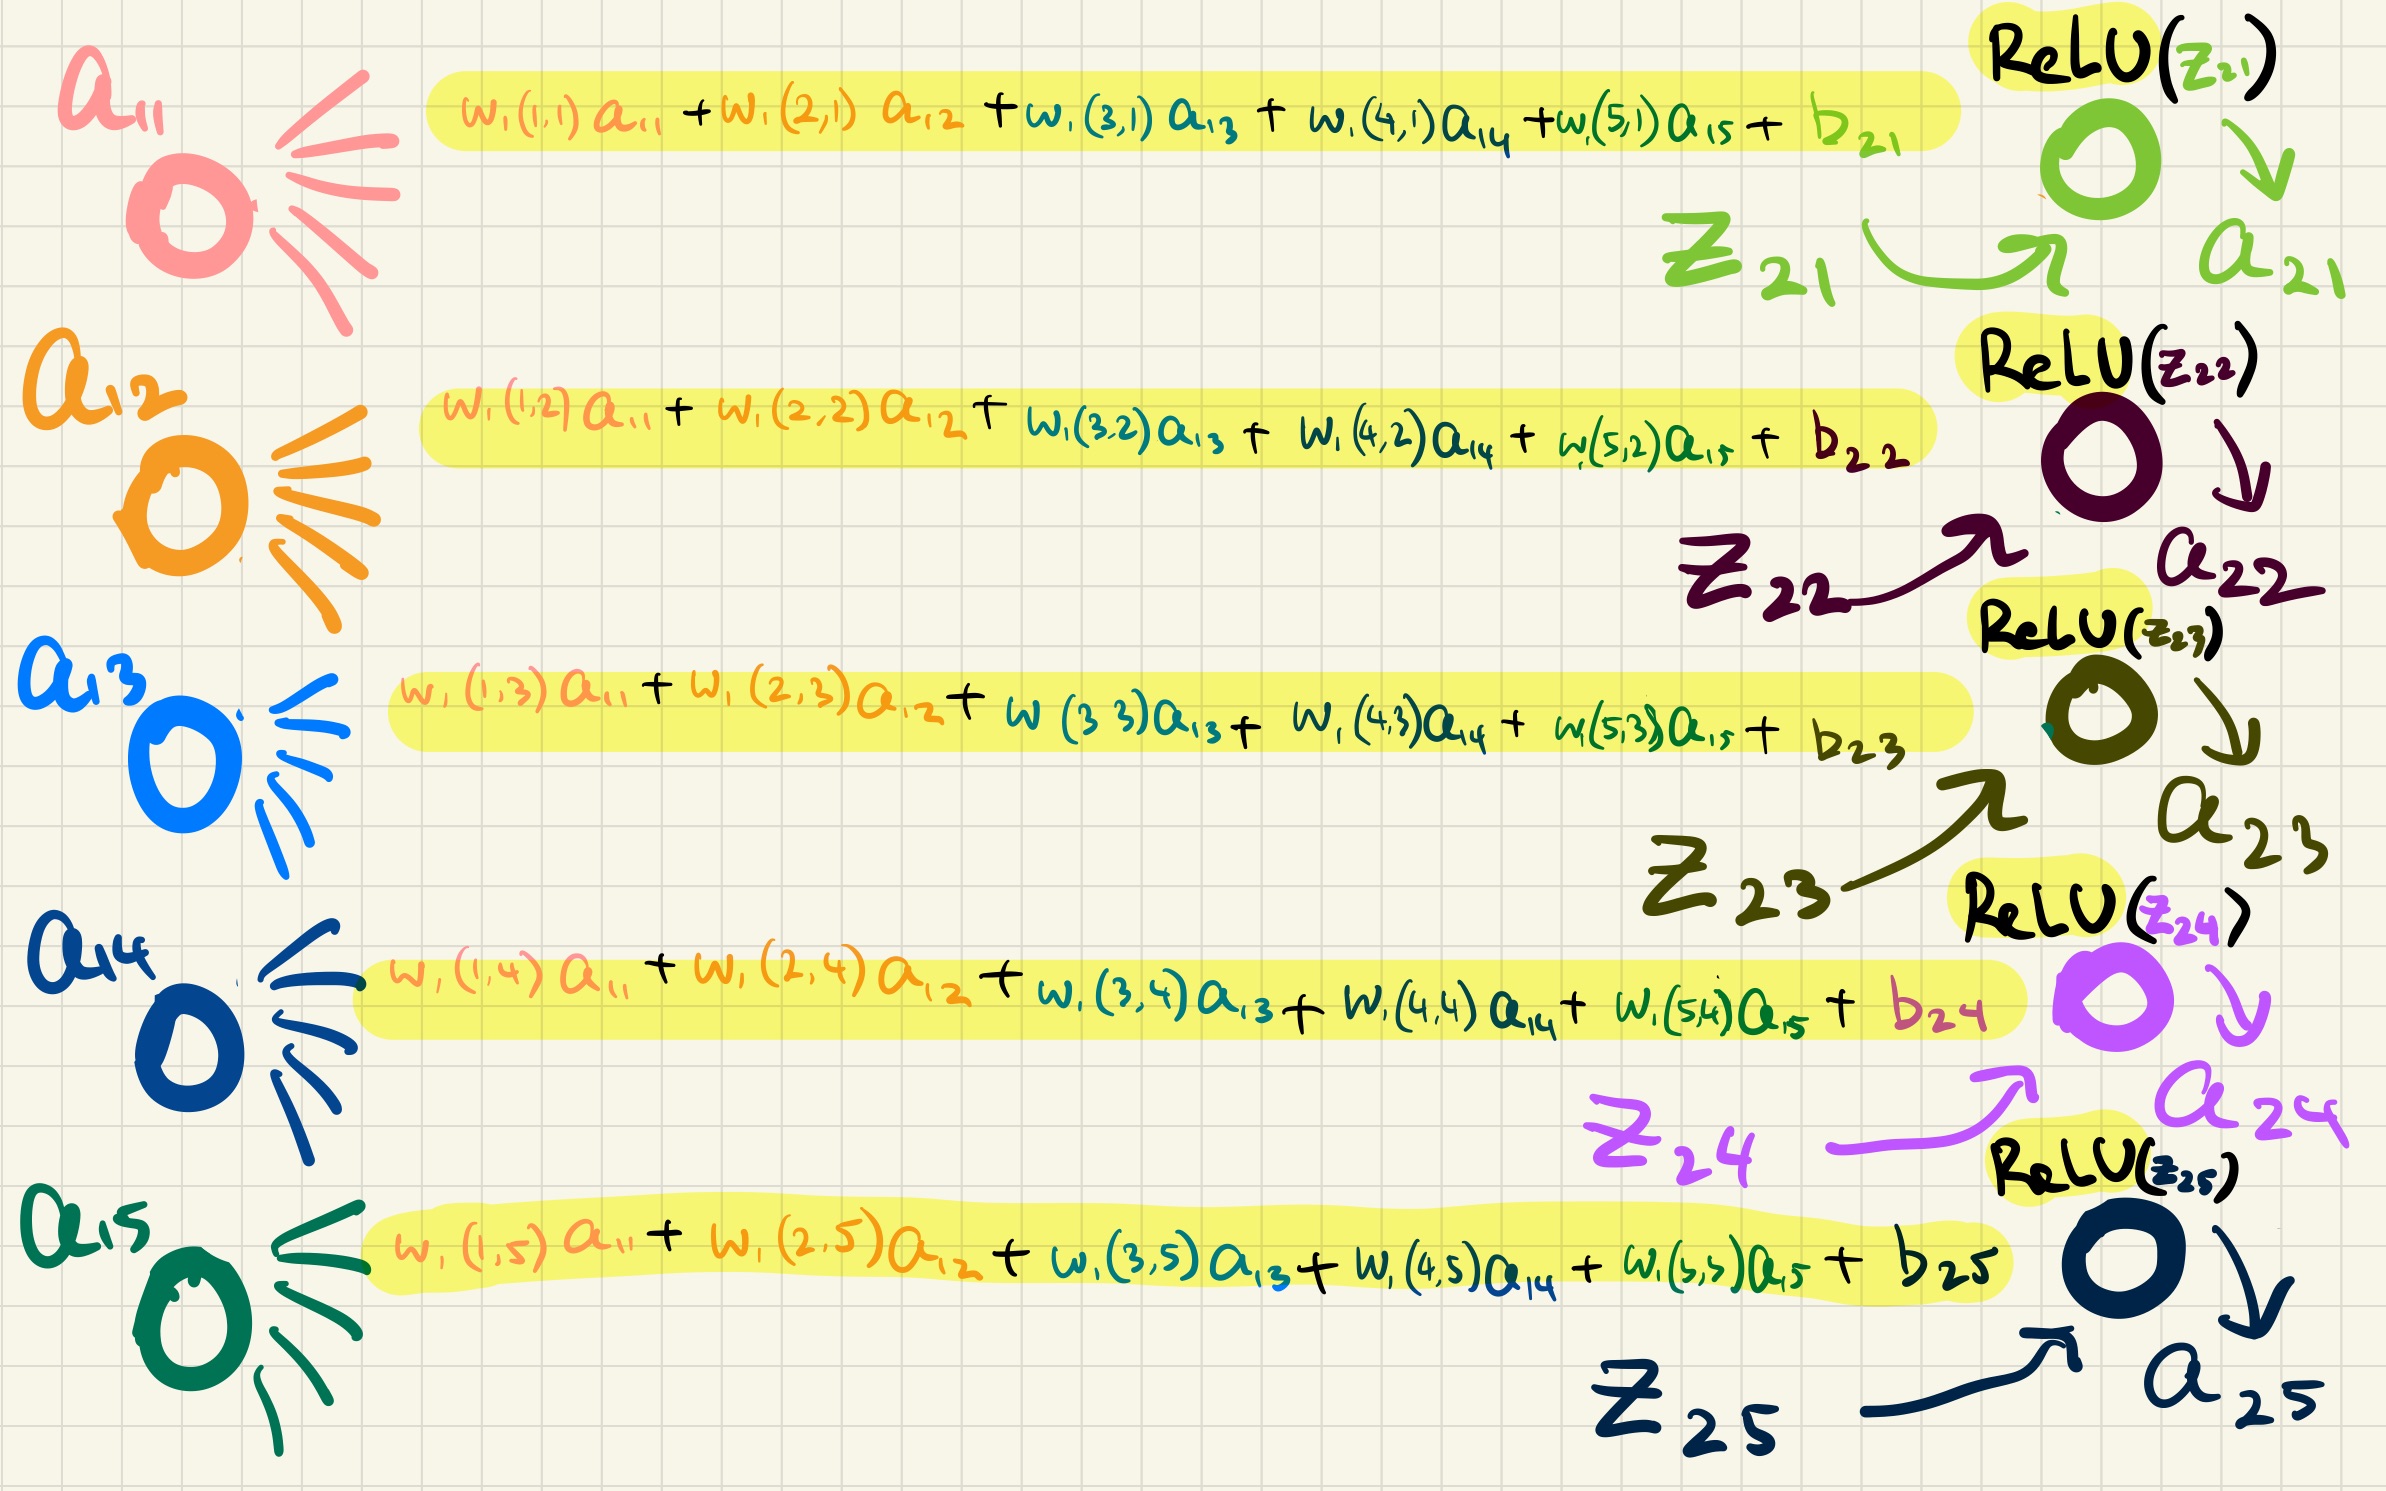 a₁₁
w₁(1,1) a₁₁ + w₁(2,1) a₁₂ + w₁(3,1) a₁₃ + w₁(4,1) a₁₄ + w₁(5,1) a₁₅ + b₂₁
ReLU(z₂₁)
z₂₁
a₂₁
a₁₂
w₁(1,2) a₁₁ + w₁(2,2) a₁₂ + w₁(3,2) a₁₃ + w₁(4,2) a₁₄ + w₁(5,2) a₁₅ + b₂₂
ReLU(z₂₂)
z₂₂
a₂₂
a₁₃
w₁(1,3) a₁₁ + w₁(2,3) a₁₂ + w(3 3) a₁₃ + w₁(4,3) a₁₄ + w₁(5,3) a₁₅ + b₂₃
ReLU(z₂₃)
z₂₃
a₂₃
a₁₄
w₁(1,4) a₁₁ + w₁(2,4) a₁₂ + w₁(3,4) a₁₃ + w₁(4,4) a₁₄ + w₁(5,4) a₁₅ + b₂₄
ReLU(z₂₄)
z₂₄
a₂₄
a₁₅
w₁(1,5) a₁₁ + w₁(2,5) a₁₂ + w₁(3,5) a₁₃ + w₁(4,5) a₁₄ + w₁(5,5) a₁₅ + b₂₅
ReLU(z₂₅)
z₂₅
a₂₅